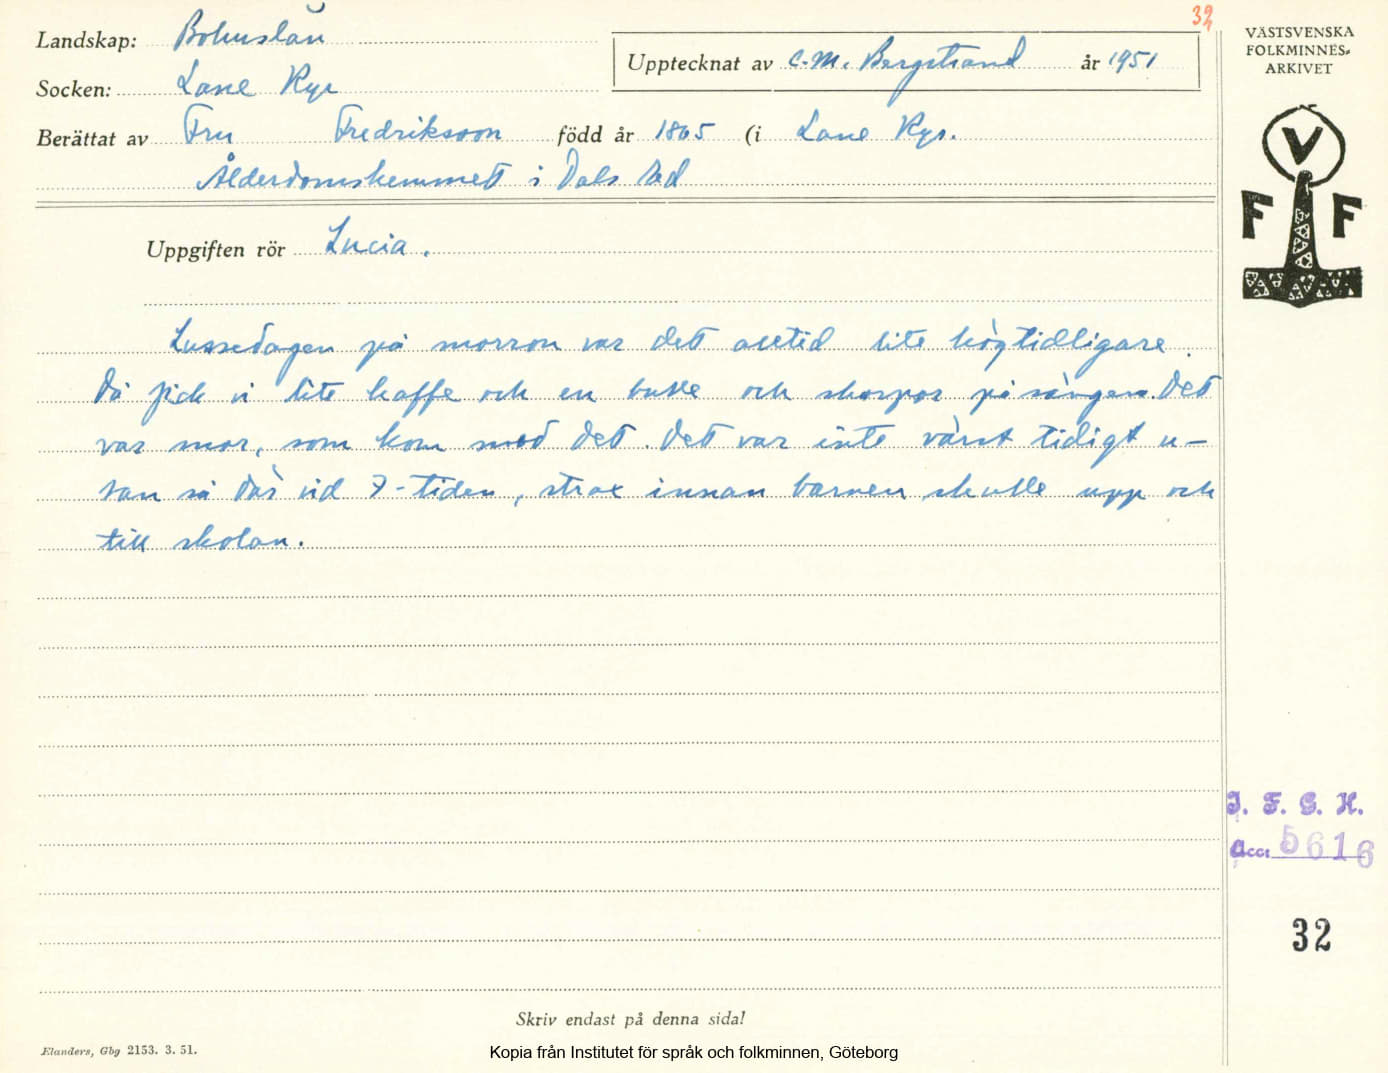 32
Landskap: Bohuslän
Upptecknat av C.M. Bergstrand år 1951
Socken: Lane Ryr
Berättat av Fru Fredriksson född år 1865 (i Lane Ryr.
Ålderdomshemmet i Dals Ed
Uppgiften rör Lucia.
Lussedagen på morron var det alltid lite högtidligare.
Då fick vi lite kaffe och en bulle och skorpor på sängen. Det
var mor, som kom med det. Det var inte värst tidigt u-
tan så där vid 7-tiden, strax innan barnen skulle upp och
till skolan.
Skriv endast på denna sida!
Elanders, Gbg 2153. 3. 51.
Kopia från Institutet för språk och folkminnen, Göteborg
VÄSTSVENSKA
FOLKMINNES-
ARKIVET
V
F F
I. F. G. H.
Acc: 5616
32